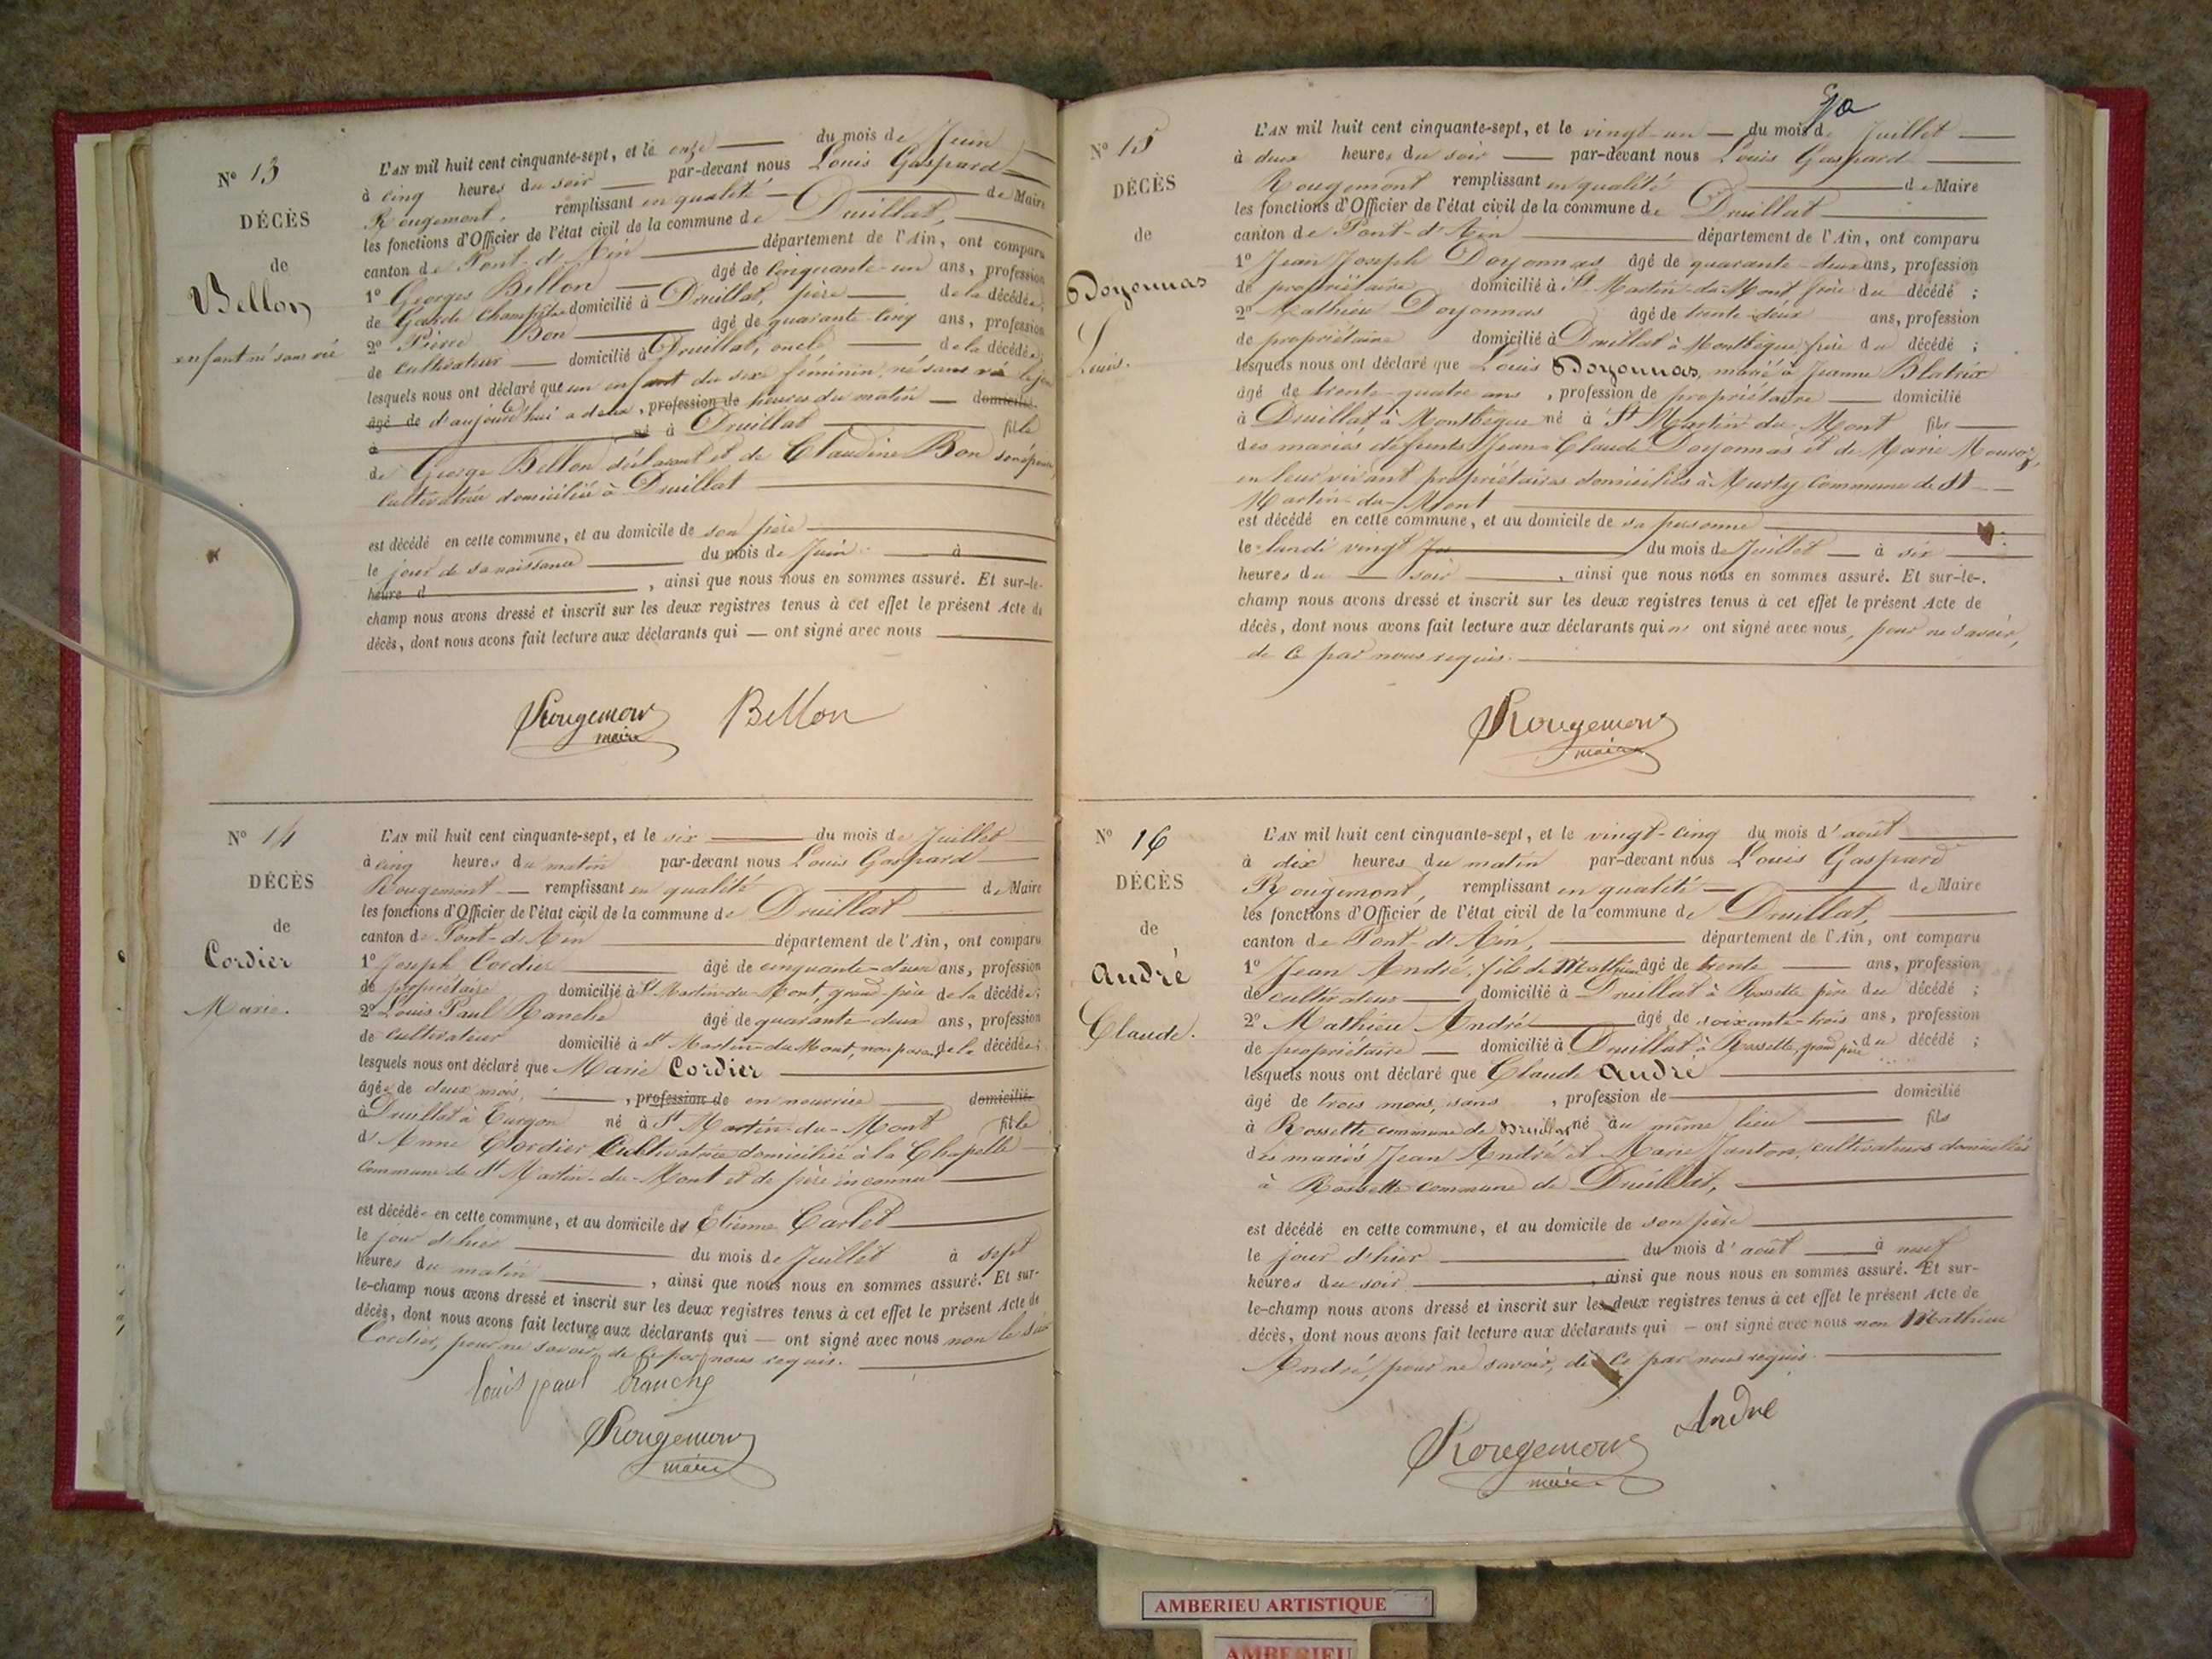 N° 13
DÉCÈS
de
Bellon
enfant né sans vie
L'AN mil huit cent cinquante-sept, et le onze du mois de Juin
à cinq heures du soir par-devant nous Louis Gaspard
Rougemont, remplissant en qualité de Maire
les fonctions d'Officier de l'état civil de la commune de Druillat,
canton de Pont-d'Ain département de l'Ain, ont comparu
1° Georges Bellon âgé de cinquante-un ans, profession
de Garde Champêtre domicilié à Druillat, père de la décédée;
2° Pierre Bon âgé de quarante-cinq ans, profession
de cultivateur domicilié à Druillat, oncle de la décédée;
lesquels nous ont déclaré que un enfant du sexe féminin, né sans vie le jour
âgé de d'aujourd'hui a deux, profession de heures du matin domicilié
à né à Druillat fille
de George Bellon déclarant et de Claudine Bon son épouse
cultivatrice domiciliée à Druillat
est décédé en cette commune, et au domicile de son père
le jour de sa naissance du mois de Juin à
heure d , ainsi que nous nous en sommes assuré. Et sur-le-
champ nous avons dressé et inscrit sur les deux registres tenus à cet effet le présent Acte de
décès, dont nous avons fait lecture aux déclarants qui — ont signé avec nous
Rougemont Bellon
maire
N° 14
DÉCÈS
de
Cordier
Marie.
L'AN mil huit cent cinquante-sept, et le six du mois de Juillet
à cinq heures du matin par-devant nous Louis Gaspard
Rougemont remplissant en qualité de Maire
les fonctions d'Officier de l'état civil de la commune de Druillat
canton de Pont-d'Ain département de l'Ain, ont comparu
1° Joseph Cordier âgé de cinquante-deux ans, profession
de propriétaire domicilié à St Martin-du-Mont, grand-père de la décédée;
2° Louis Paul Ranche âgé de quarante-deux ans, profession
de cultivateur domicilié à St Martin-du-Mont, non parent de la décédée;
lesquels nous ont déclaré que Marie Cordier
âgée de deux mois, , profession de en nourrice domicilié
à Druillat à Turgon né à St Martin-du-Mont fille
d'Anne Cordier Cultivatrice domiciliée à la Chapelle
Commune de St Martin-du-Mont et de père inconnu
est décédée en cette commune, et au domicile de Etienne Carlet
le jour d'hier du mois de Juillet à sept
heures du matin , ainsi que nous nous en sommes assuré. Et sur-
le-champ nous avons dressé et inscrit sur les deux registres tenus à cet effet le présent Acte de
décès, dont nous avons fait lecture aux déclarants qui — ont signé avec nous non le
Cordier, pour ne savoir, de ce par nous requis.
Louis paul Ranche
Rougemont
maire
N° 15
DÉCÈS
de
Doyonnas
Louis.
L'AN mil huit cent cinquante-sept, et le vingt-un du mois de Juillet
à deux heures du soir par-devant nous Louis Gaspard
Rougemont remplissant en qualité de Maire
les fonctions d'Officier de l'état civil de la commune de Druillat
canton de Pont-d'Ain département de l'Ain, ont comparu
1° Jean Joseph Doyonnas âgé de quarante-deux ans, profession
de propriétaire domicilié à St Martin-du-Mont frère du décédé;
2° Mathieu Doyonnas âgé de trente-deux ans, profession
de propriétaire domicilié à Druillat à Montbègue frère du décédé;
lesquels nous ont déclaré que Louis Doyonnas, marié à Jeanne Blatrix
âgé de trente-quatre ans, profession de propriétaire domicilié
à Druillat à Montbègue né à St Martin du Mont fils
des mariés défunts Jean-Claude Doyonnas et de Marie
en leur vivant propriétaires domiciliés à Commune de St
Martin-du-Mont
est décédé en cette commune, et au domicile de sa personne
le lundi vingt du mois de Juillet à six
heures du soir , ainsi que nous nous en sommes assuré. Et sur-le-
champ nous avons dressé et inscrit sur les deux registres tenus à cet effet le présent Acte de
décès, dont nous avons fait lecture aux déclarants qui n'ont signé avec nous, pour ne savoir,
de ce par nous requis.
Rougemont
maire
N° 16
DÉCÈS
de
André
Claude.
L'AN mil huit cent cinquante-sept, et le vingt-cinq du mois d'août
à dix heures du matin par-devant nous Louis Gaspard
Rougemont, remplissant en qualité de Maire
les fonctions d'Officier de l'état civil de la commune de Druillat,
canton de Pont-d'Ain, département de l'Ain, ont comparu
1° Jean André, fils de Mathieu âgé de trente ans, profession
de cultivateur domicilié à Druillat à Rossette père du décédé;
2° Mathieu André âgé de soixante-trois ans, profession
de propriétaire domicilié à Druillat à Rossette grand père du décédé;
lesquels nous ont déclaré que Claude André
âgé de trois mois, sans, profession de domicilié
à Rossette commune de Druillat né au même lieu fils
des mariés Jean André et Marie Janton, cultivateurs domiciliés
à Rossette commune de Druillat,
est décédé en cette commune, et au domicile de son père
le jour d'hier du mois d'août à neuf
heures du soir , ainsi que nous nous en sommes assuré. Et sur-
le-champ nous avons dressé et inscrit sur les deux registres tenus à cet effet le présent Acte de
décès, dont nous avons fait lecture aux déclarants qui — ont signé avec nous non Mathieu
André, pour ne savoir, de ce par nous requis.
André
Rougemont
maire
AMBERIEU ARTISTIQUE
AMBERIEU